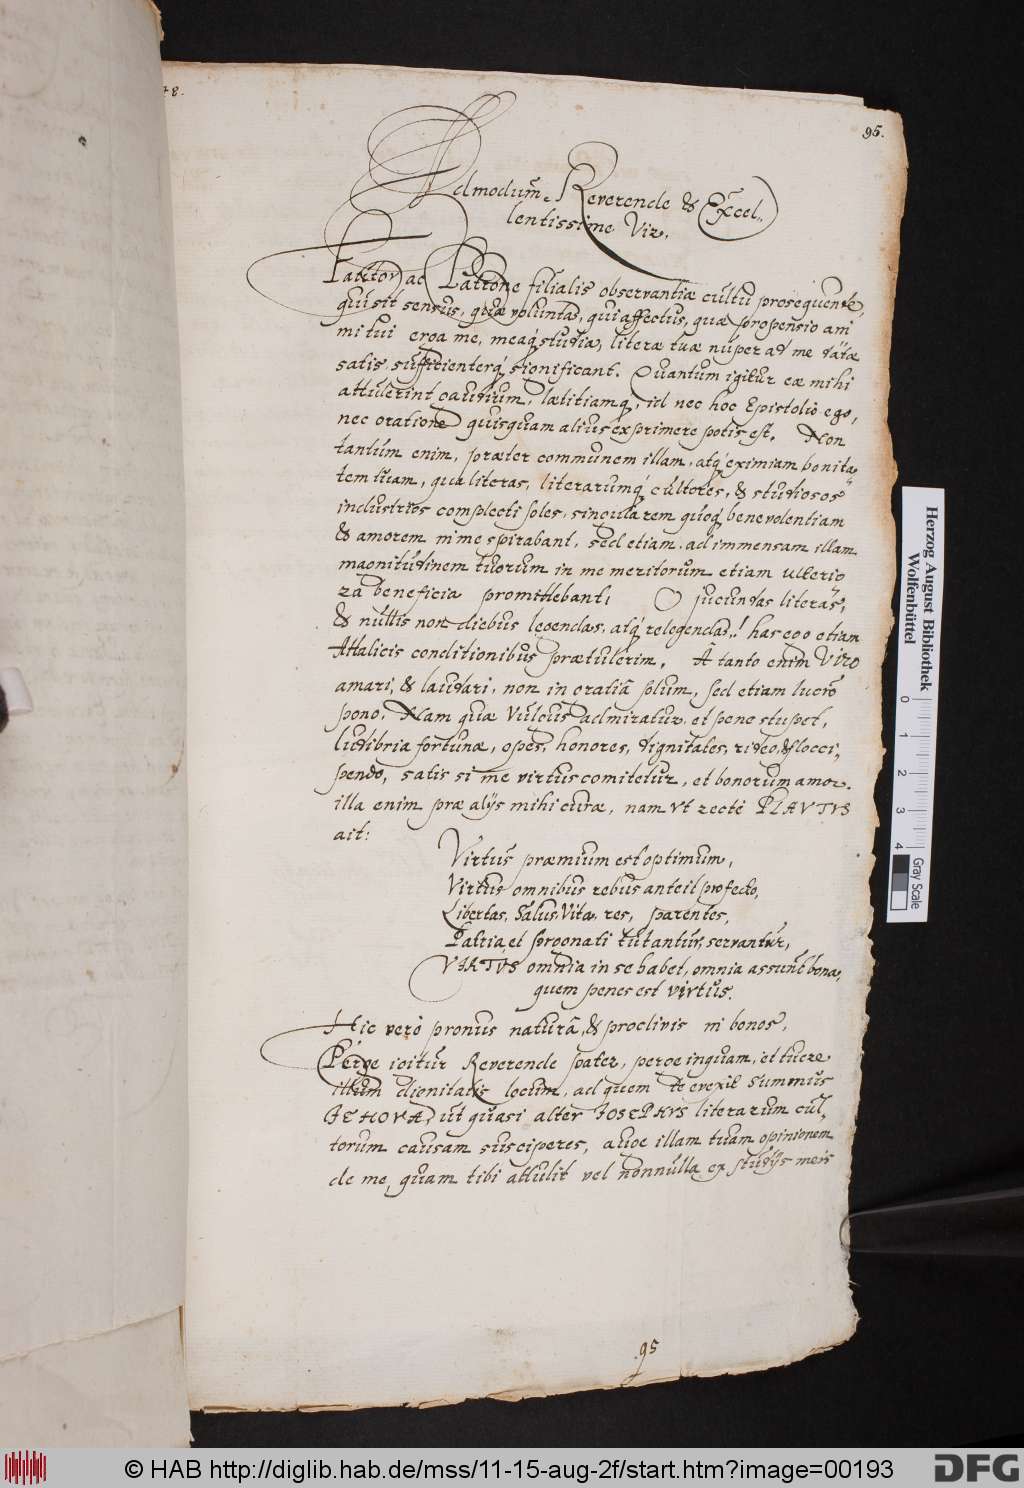 48.
95.
Admodum Reverende & Excel„
lentissime Vir.
Fautor ac Patrone filialis observantiæ cultu prosequende,
qui sit sensus, quæ voluntas, qui affectus, quæ propensio ani
mi tui erga me, meaq́ studia, literæ tuæ nuper ad me datæ
satis sufficienterq́ significant. Quantum igitur eæ mihi
attulerint gaudium, lætitiamq́, id nec hoc Epistolio ego,
nec oratione quisquam alius exprimere potis est. Non
tantùm enim, præter communem illam, atq́ eximiam bonita„
tem tuam, qua literas, literarumq́ cultores, & studiosos
industrios complecti soles, singularem quoq́ benevolentiam
& amorem in me spirabant, sed etiam ad immensam illam
magnitudinem tuorum in me meritorum etiam ulterio
ra beneficia promittebant. O jucundas literas,
& nullis non diebus legendas, atq́ relegendas! has ego etiam
Attalicis conditionibus prætulerim. A tanto enim Viro
amari, & laudari, non in gratiâ solum, sed etiam lucro
pono. Nam quæ vulgus admiratur, et pene stupet,
ludibria fortunæ, opes, honores, dignitates, rideo, & flocci,
pendo, satis si me virtus comitetur, et bonorum amor.
illa enim præ alijs mihi curæ, nam ut rectè PLAVTVS
ait:
Virtus præmium est optimum,
Virtus omnibus rebus anteit profecto,
Libertas, Salus, Vita, res, parentes,
Patria, et prognati tutantur, servantur,
VIRTUS omnia in se habet, omnia assunt bona,
quem penes est virtus.
Hic verò pronus naturâ, & proclivis in bonos,
Perge igitur Reverende pater, perge inquam, et tuere
illum dignitatis locum, ad quem te evexit summus
JEHOVA, ut quasi alter JOSEPHVS literarum cul„
torum causam susciperes, auge illam tuam opinionem
de me, quam tibi attulit vel nonnulla ex studijs meis
95
Herzog August Bibliothek
Wolfenbüttel
0 1 2 3 4
Gray Scale
© HAB http://diglib.hab.de/mss/11-15-aug-2f/start.htm?image=00193
DFG